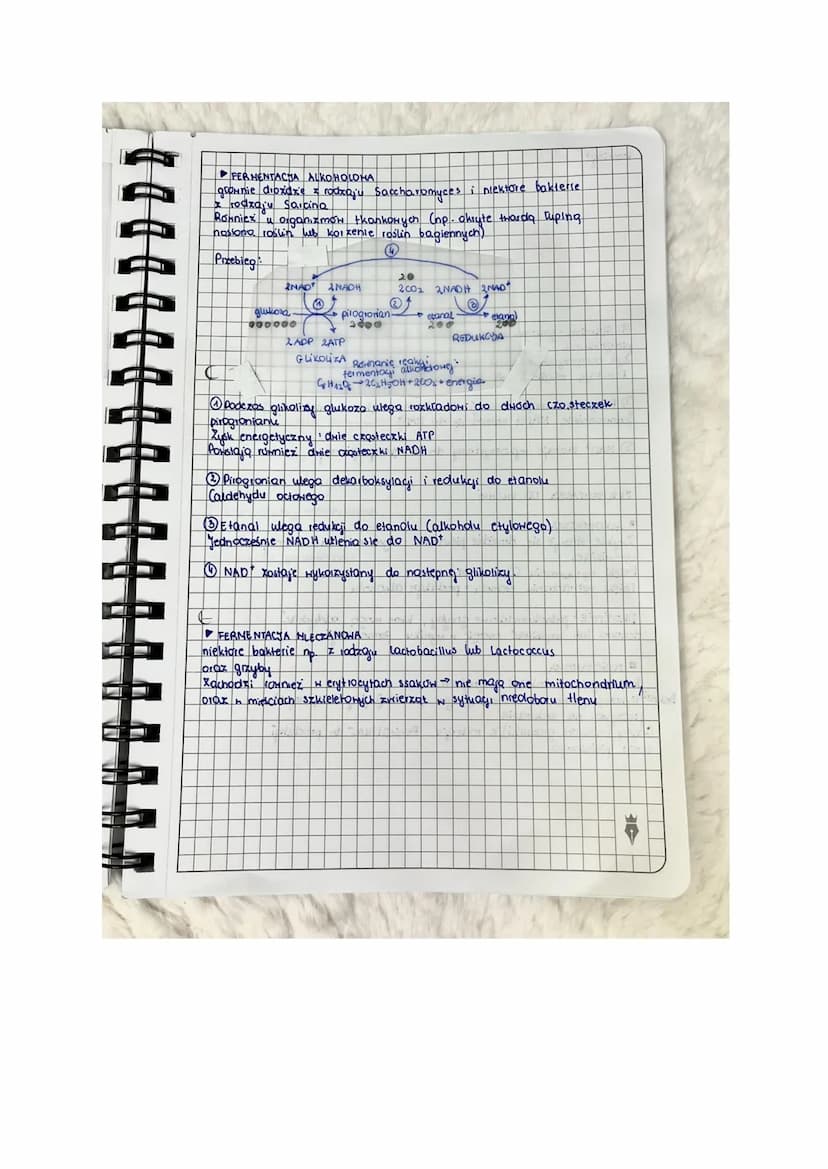 ▶ FERMENTACJA ALKOHOLOWA
głównie drożdże z rodzaju Saccharomyces i niektóre bakterie
z rodzaju Sarcina
Również u organizmów tkankowych (np. okryte twardą łupiną
nasiona roślin lub korzenie roślin bagiennych)
Przebieg:
④
2NAD⁺ 2NADH 2CO₂ 2NADH 2NAD⁺
① ② ③
glukoza pirogronian etanal etanol
2ADP 2ATP REDUKCJA
GLIKOLIZA
Równanie reakcji
fermentacji alkoholowej:
C₆H₁₂O₆ → 2C₂H₅OH + 2CO₂ + energia
① Podczas glikolizy glukoza ulega rozkładowi do dwóch cząsteczek
pirogronianu
Zysk energetyczny: dwie cząsteczki ATP
Powstają również dwie cząsteczki NADH
② Pirogronian ulega dekarboksylacji i redukcji do etanolu
(aldehydu octowego
③ Etanal ulega redukcji do etanolu (alkoholu etylowego)
Jednocześnie NADH utlenia się do NAD⁺
④ NAD⁺ zostaje wykorzystany do następnej glikolizy.
▶ FERMENTACJA MLECZANOWA
niektóre bakterie np. z rodzaju Lactobacillus lub Lactococcus
oraz grzyby
Zachodzi również w erytrocytach ssaków → nie mają one mitochondrium,
oraz w mięśniach szkieletowych zwierząt w sytuacji niedoboru tlenu